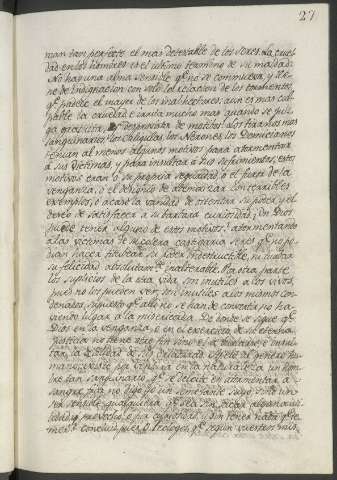 27
man tan perfecto el mas detestable de los seres. La cruel-
dad en los hombres es el ultimo termino de su maldad.
No hay una alma sensible qe. no se conmueva, y lle-
ne de indignacion con solo la relacion de los tormentos,
qe. padece el mayor de los malhechores; aun es mas cul-
pable la crueldad e irrita mucho mas quando se juz-
ga gratuita, desprovista de motivos. Los tiranos mas
sanguinarios los Caligulas, los Nerones, los Domicianos
tenian al menos algunos motivos para atormentar
a sus victimas, y para insultar à sus sufrimientos, estos
motivos eran ò su propria seguridad, o el furor de la
venganza, ò el designio de atemorizar con terribles
exemplos, ò acaso la vanidad de ostentar su poder y el
deseo de satisfacer a su barbara curiosidad; Un Dios
puede tener alguno de estos motivos? atormentando
a las victimas de su colera castigaria seres qe. no pue-
dan hacer titubear su poder indestructible, ni turbar
su felicidad absolutamte. inalterable. Pr. otra parte
los suplicios de la otra vida son inutiles à los vivos,
pues no los pueden ver, son inutiles à los mismos con-
denados, supuesto qe. alli no se han de convertir no ha-
viendo lugar à la misericordia. De donde se sigue qe.
Dios en la venganza, y en el exercicio de su eterna
justicia no tiene otro fin sino el de burlarse, è insul-
tar la debilidad de sus criaturas. Apelo al genero hu-
mano: existe por ventura en la naturaleza un hom-
bre tan sanguinario qe. se deleite en atormentar à
sangre fria no digo yo un semejante suyo, sino un
ser sensible qualquiera qe. sea sin sacar alguna uti-
lidad, ò provecho, ò sin curiosidad, y sin tener nada qe. te-
mer? concluid pues ò Teologos, qe. segun vuestros mis-